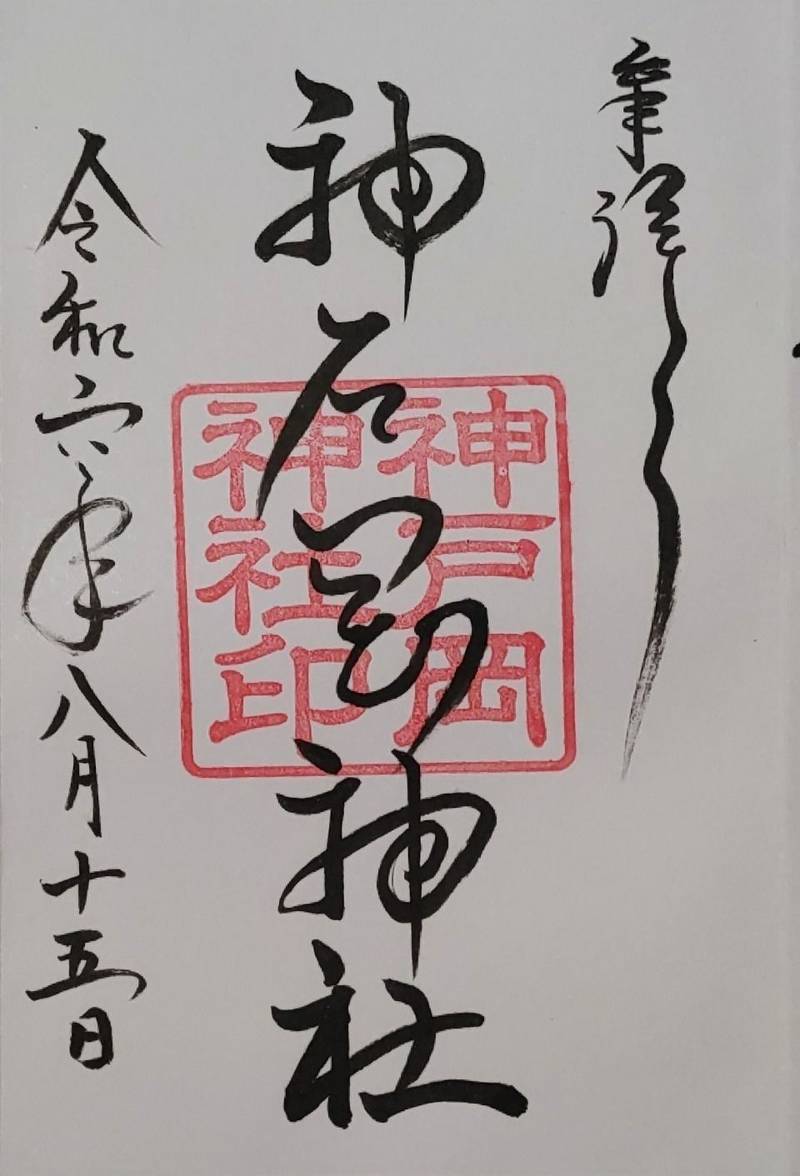 奉拝
神戸岡神社
神戸岡
神社印
令和六年八月十五日